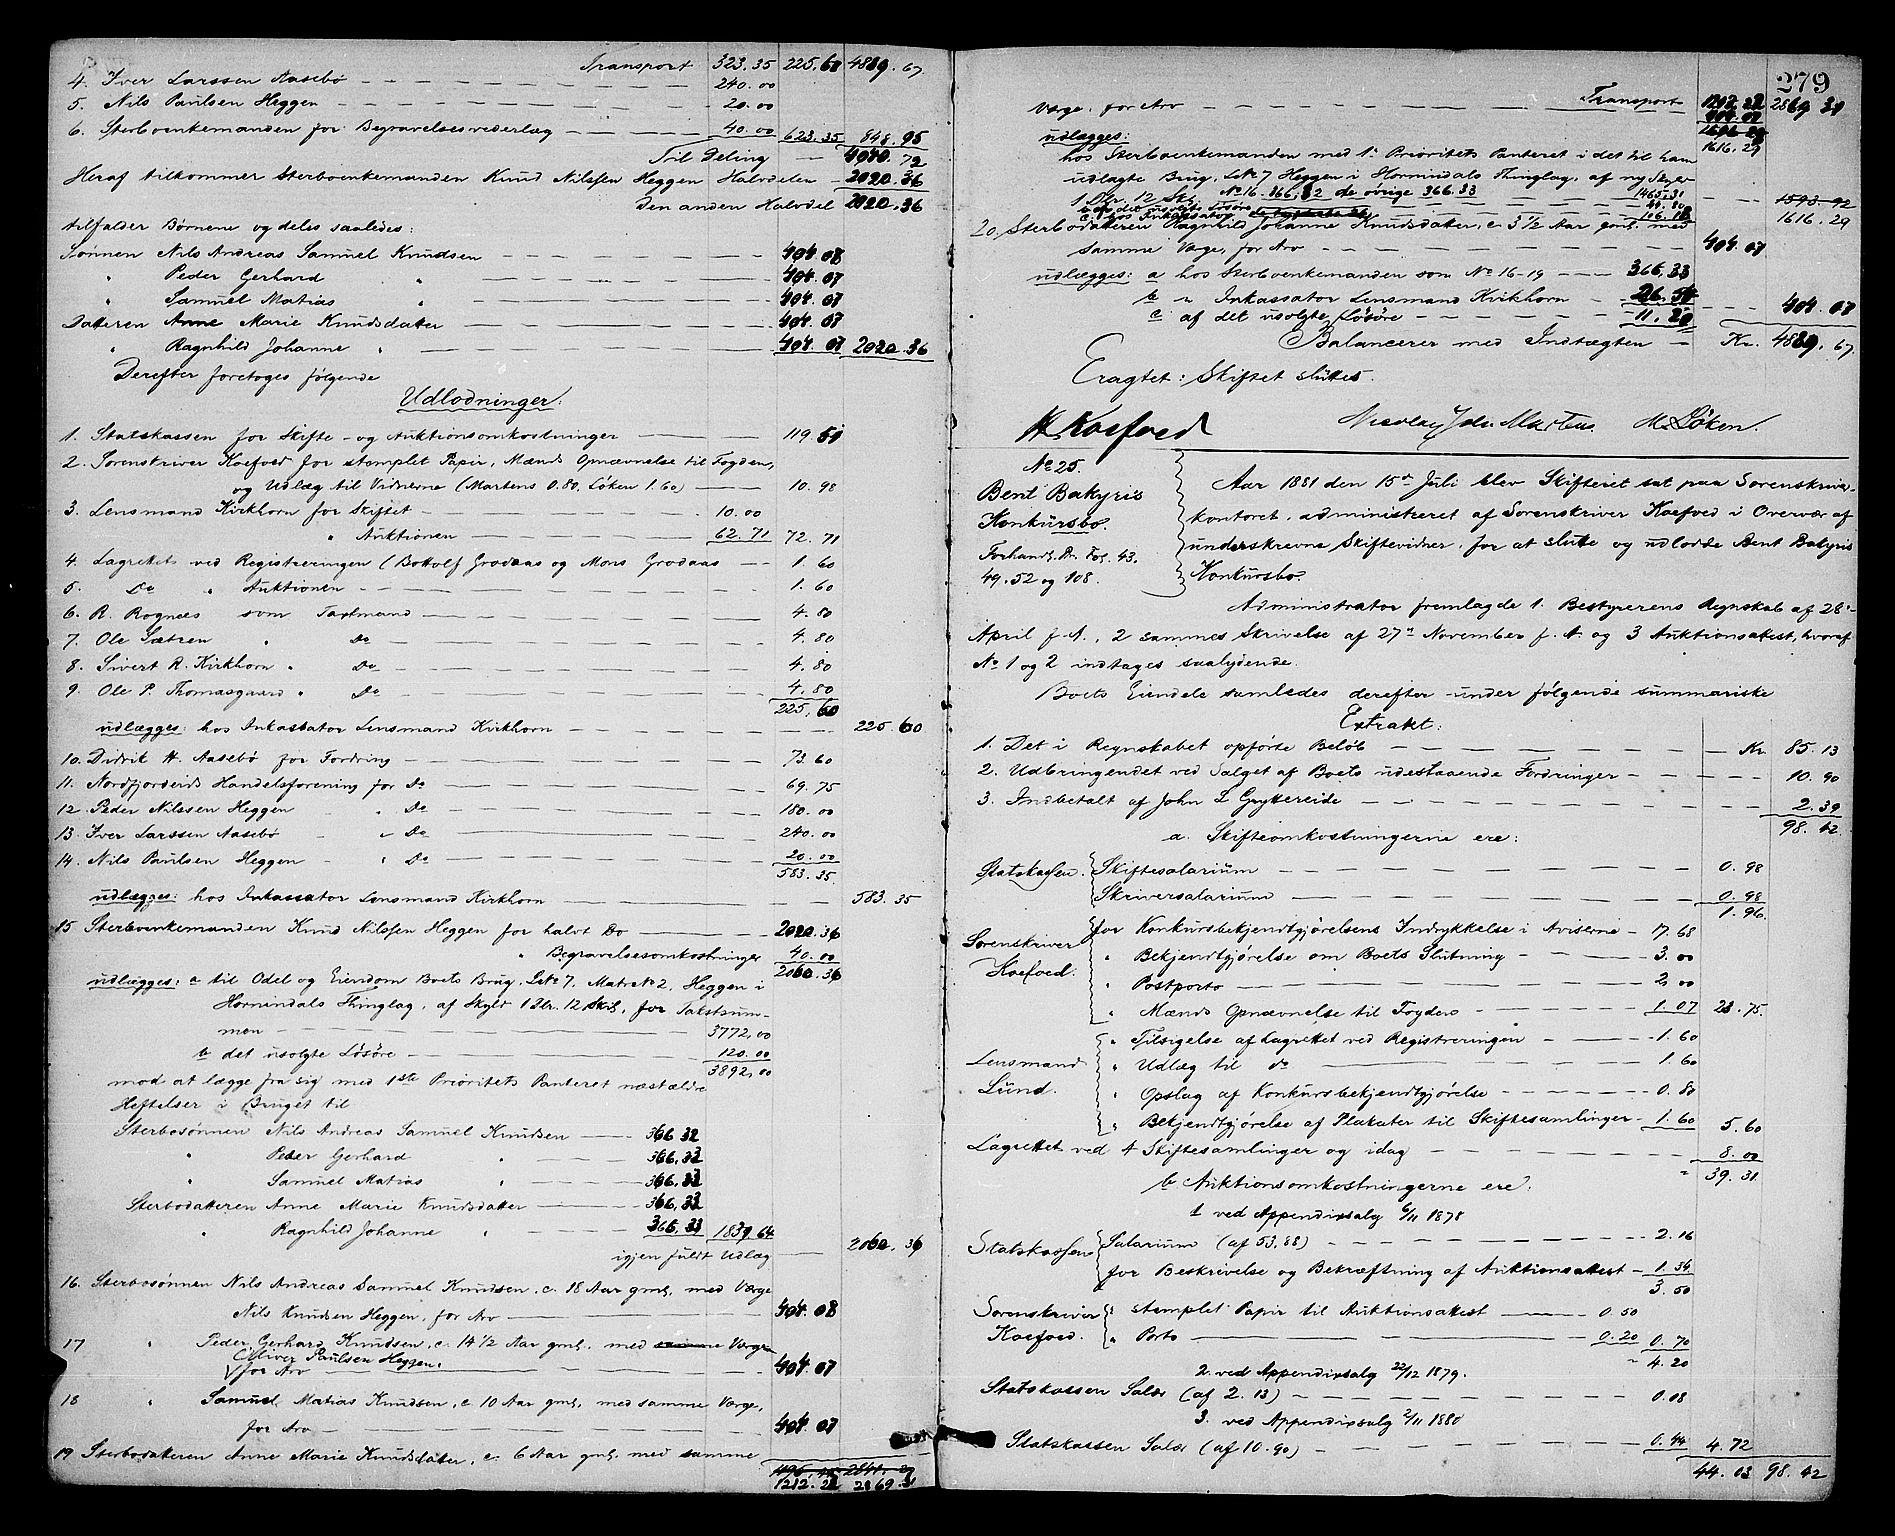 Transport 323.35 225.60 4889.67
4. Iver Larssen Aasebö 240.00
5. Nils Paulsen Heggen 20.00
6. Sterboenkemanden for Begravelsesvederlag 40.00 623.35 848.95
Til Deling 4040.72
Heraf tilkommer Sterboenkemanden Knud Nilssen Heggen Halvdelen 2020.36
Den anden Halvdel 2020.36
tilfalder Børnene og deles saaledes:
Sønnen Nils Andreas Samuel Knudsen 404.08
" Peder Gerhard " 404.07
" Samuel Matias " 404.07
Datteren Anne Marie Knudsdatter 404.07
" Ragnhild Johanne " 404.07 2020.36
Derefter foretoges følgende
Udlodninger:
1. Statskassen for Skifte- og Auktionsomkostninger 119.51
2. Sorenskriver Koefoed for stemplet Papir, Mænds Opnævnelse til Fogden,
og Udlæg til Vidnerne (Martens 0.80, Löken 1.60) 10.98
3. Lensmand Kirkhorn for Skiftet 10.00
" Auktionen 62.71 72.71
4. Lagrettet ved Registreringen (Bottolf Grodaas og Mons Grodaas 1.60
5. Do " Auktionen 1.60
6. R. Rognes som Taxtmand 4.80
7. Ole Sætren " Do 4.80
8. Sivert R. Kirkhorn " Do 4.80
9. Ole P. Thomasgaard " Do 4.80
225.60
udlægges: hos Inkassator Lensmand Kirkhorn 225.60
10. Didrik H. Aasebö for Fordring 73.60
11. Nordfjordeids Handelsforening for Do 69.75
12. Peder Nilssen Heggen " Do 180.00
13. Iver Larssen Aasebö " Do 240.00
14. Nils Paulsen Heggen " Do 20.00
583.35
udlægges: hos Inkassator Lensmand Kirkhorn 583.35
15 Sterboenkemanden Knud Nilssen Heggen for halvt Bo 2020.36
" Begravelsesomkostninger 40.00
2060.36
udlægges: a til Odel og Eiendom Boets Brug, L№ 7, Matr№ 2, Heggen i
Hornindals Thinglag, af Skyld 1 Dlr. 12 Skil, for Takstsum-
men 3772.00
b det usolgte Løsøre 120.00
3892.00
mod at lægge fra sig med 1ste Prioritets Panteret næstældre
Heftelser i Bruget til
Sterbosønnen Nils Andreas Samuel Knudsen 366.32
" Peder Gerhard " 366.33
" Samuel Matias " 366.33
Sterbodatteren Anne Marie Knudsdatter 366.33
" Ragnhild Johanne " 366.33 1831.64
igjen fuldt Udlæg 2060.36
16. Sterbosønnen Nils Andreas Samuel Knudsen, c. 18 Aar gml. med Værge
Nils Knudsen Heggen, for Arv 404.08
17 " Peder Gerhard Knudsen, c. 14 1/2 Aar gml. med samme Værge
Oliver Paulsen Heggen.
for Arv 404.07
18 " Samuel Matias Knudsen, c. 10 Aar gml. med samme Værge,
for Arv 404.07
19 Sterbodatteren Anne Marie Knudsdatter, c. 6 Aar gml. med samme
1212.22 2869.31
279
Transport 1212.22 2869.31
Værge, for Arv 404.07
1616.29
udlægges:
hos Sterboenkemanden med 1' Prioritets Panteret i det til ham
udlagte Brug, L№ 7 Heggen i Hornindals Thinglag, af ny Skyld
1 Dlr. 12 Sk. № 16. 366,32 de øvrige 366.33 1465.31
b af det usolgte Løsøre 44.80
c. hos Inkassator 106.18 1616.29
20, Sterbodatteren Ragnhild Johanne Knudsdatter, c. 3 1/2 Aar gml. med
samme Værge, for Arv 404.07
udlægges: a hos Sterboenkemanden som № 16-19 366.33
b " Inkassator Lensmand Kirkhorn 26.54
c af det usolgte Løsøre 11.20 404.07
Balancerer med Indtægten Kr. 4889.67.
Eragtet: Skiftet sluttes.
H Koefoed Nicolay Martens. M. Löken.
№ 25.
Bent Bakyris
Konkursbo.
Forhandl. Pr. Fol. 43.
49. 52 og 108.
Aar 1881 den 15de Juli blev Skifteret sat paa Sorenskriver-
kontoret, administreret af Sorenskriver Koefoed i Overvær af
underskrevne Skiftevidner, for at slutte og udlodde Bent Bakyris
Konkursbo.
Administrator fremlagde 1. Bestyrerens Regnskab af 28'
April f. A., 2 sammes Skrivelse af 27de November f. A. og 3 Auktionsattest, hvoraf
№ 1 og 2 indtages saalydende.
Boets Eiendele samledes derefter under følgende summariske
Extrakt:
1. Det i Regnskabet opførte Beløb Kr. 85.13
2. Udbringendet ved Salget af Boets udestaaende Fordringer 10.90
3. Indbetalt af John L Gryttereide 2.39
98.42
a. Skifteomkostningerne ere:
Statskassen. Skiftesalarium 0.98
Skriversalarium 0.98
1.96
Sorenskriver Koefoed. for Konkursbekjendtgjørelsens Indrykkelse i Aviserne 17.68
" Bekjendtgjørelse om Boets Slutning 3.00
" Postporto 2.00
" Mænds Opnævnelse til Fogden 1.07 23.75
Lensmand Lund. " Tilsigelse af Lagrettet ved Registreringen 1.60
" Udlæg til do 1.60
" Opslag af Konkursbekjendtgjørelse 0.80
" Bekjendtgjørelse af Plakater til Skiftesamlinger 1.60 5.60
Lagrettet ved 4 Skiftesamlinger og idag 8.00
39.31
b Auktionsomkostningerne ere:
1 ved Appendixsalg 6/11 1878
Statskassen Salarium (af 53,88) 2.16
for Beskrivelse og Bekræftning af Auktionsattest 1.34
3.50
Sorenskriver Koefoed. " stemplet Papir til Auktionsattest 0.50
" Porto 0.20 0.70
4.20
2. ved Appendixsalg 22/12 1879.
Statskassen Salær (af 2.13) 0.08
3. ved Appendixsalg 2/11 1880
Statskassen Salær (af 10.90) 0.44 4.72
44.03 98.42